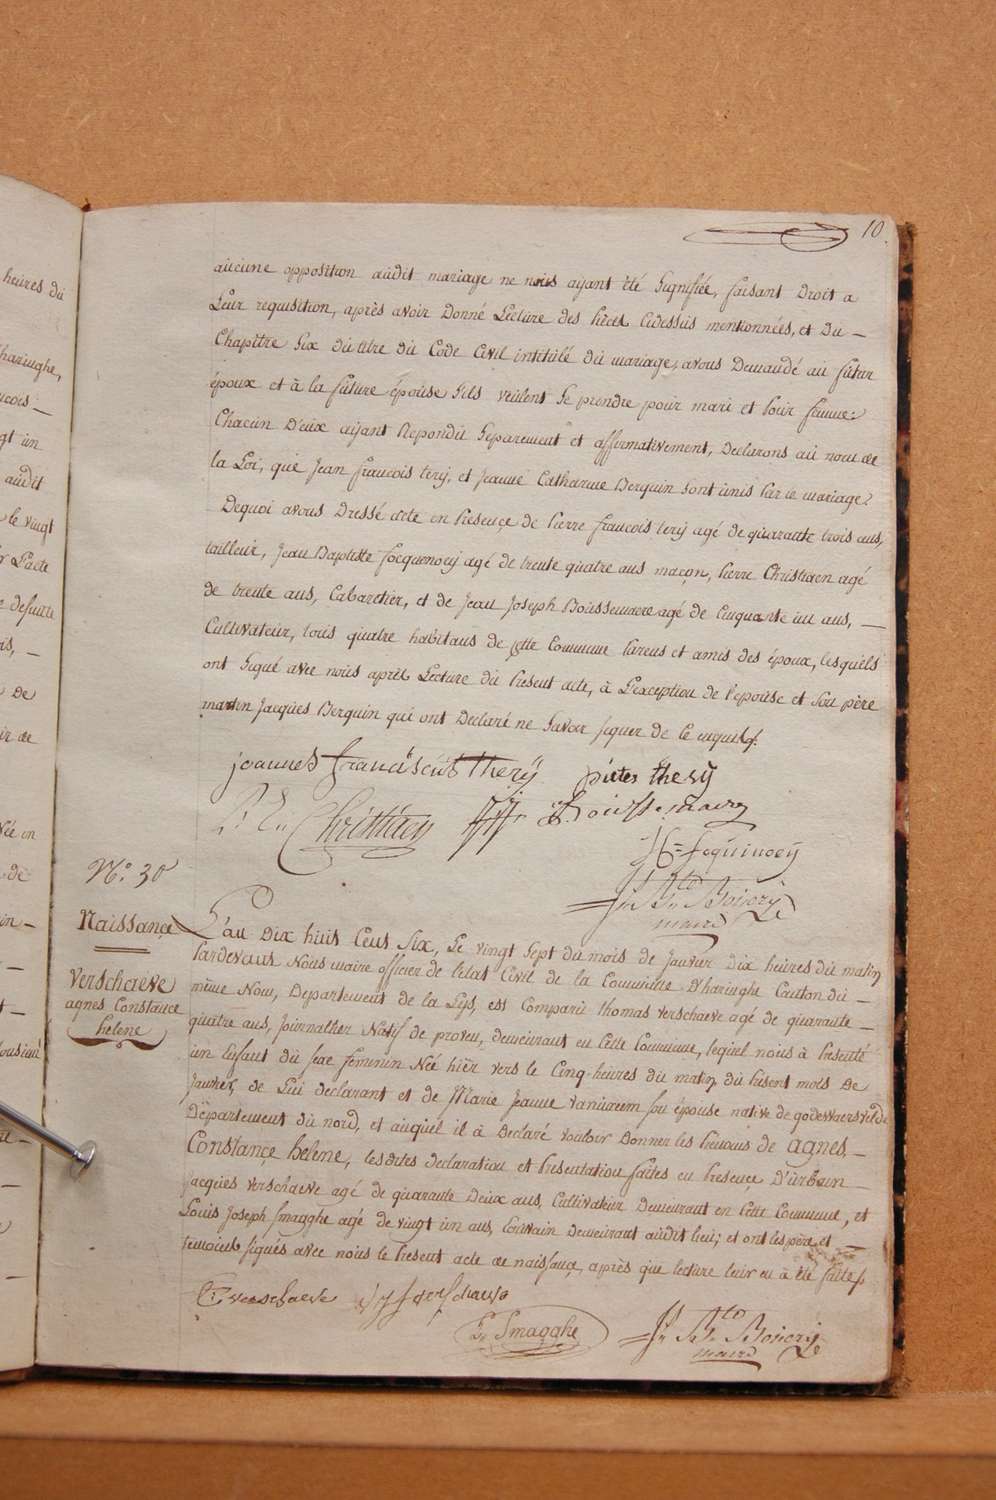 10.
aucune opposition audit mariage ne nous aÿant été Signifiée, faisant Droit a
Leur requisition, après avoir Donné Lecture des Pièces Cidessus mentionnées, et Du _
Chapître Six du titre du Code Civil intitulé du mariage, avons Demandé au futur
époux et à la future épouse S'ils veulent Se prendre pour mari et Pour femme:
Chacun D'eux aÿant Repondu Separement et affirmativement, Declarons au nom de
la Loi, que Jean francois terÿ, et Jeanne Catharine Berquin sont unis Par le mariage?
Dequoi avons Dressé acte en Présence de Pierre francois terÿ agé de quarante trois ans,
tailleur, Jean Baptiste focquenoeÿ agé de trente quatre ans maçon, Pierre Christiaen agé
de trente ans, Cabaretier, et de Jean Joseph Boussemaere agé de Cinquante un ans, _
Cultivateur, tous quatre habitans de Cette Commune Parens et amis des époux, lesquels
ont Signé avec nous après Lecture du Présent acte, à L'exception de l'epouse et Son père
martin Jacques Berquin qui ont Declaré ne Savoir Signer de Ce enquis
joannes franciscus therÿ pieter therÿ
Christiaen Boussemaere
focquinoeÿ
Jn Bte
maire
No. 30
Naissançe
Verschaeve
agnes Constance
helene
L'an Dix huis Cens Six, Le vingt Sept du mois de Janvier Dix heures du matin
Pardevans Nous maire officier de l'etat Civil de la Commune D'haringhe Canton du _
même Nom, Departement de la Lÿs, est Comparu thomas verschaeve agé de quarante _
quatre ans, Journallier Natif de proven, demeurant en Cette Commune, lequel nous à Présenté
un Enfant du sexe feminin Née hier vers le Cinq heures du matin du Présent mois De
Janvier, de Lui declarant et de Marie Jeanne vanuxeem son épouse native de godewaersvelde
Département du nord, et auquel il à Declaré vouloir Donner les Prenoms de agnes _
Constançe helene, les dites declaration et Presentation faites en Présence D'urbain
jacques verschaeve agé de quarante Deux ans, Cultivateur Demeurant en Cette Commune, et
Louis Joseph Smagghe agé de vingt un ans, Ecrivain Demeurant audit lieu; et ont les père et _
temoins signés avec nous le Présent acte de naissançe, après que lecture leur en à été faite
verschaeve
L. Smagghe
Jn Bte
maire
heures du
haringhe,
audit
le vingt
l'acte
De